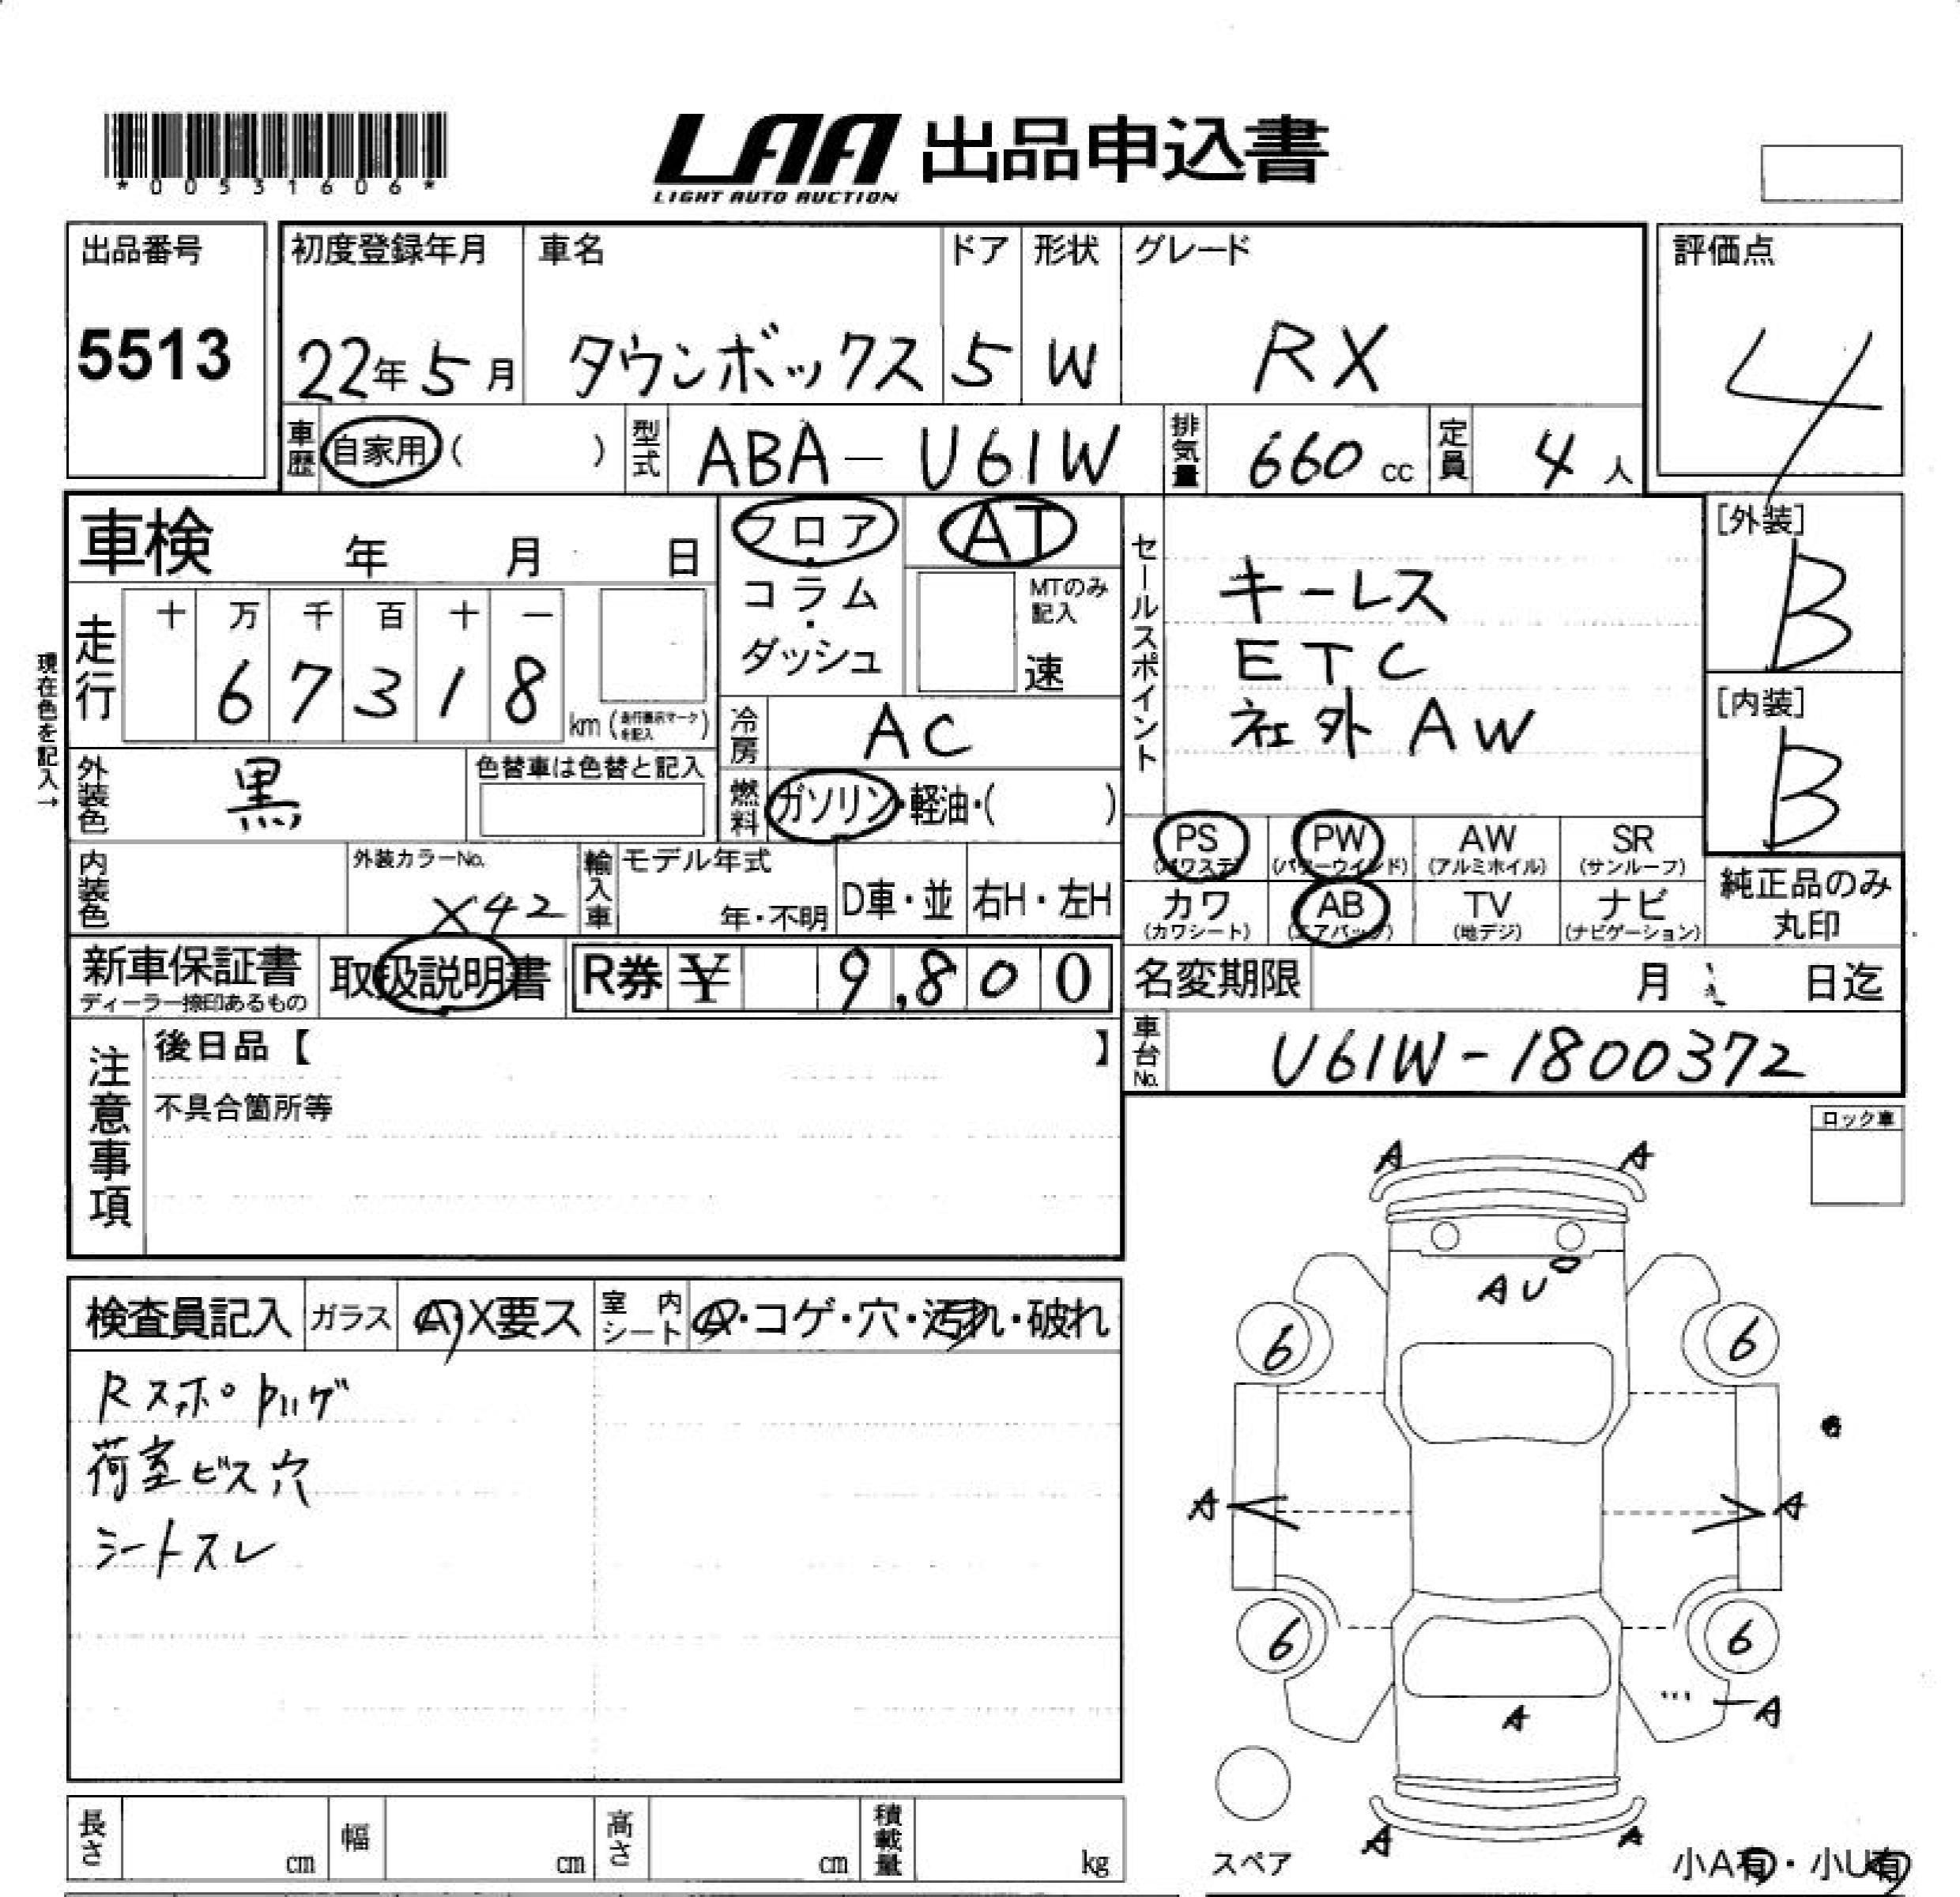 *00531606*
LAA 出品申込書
LIGHT AUTO AUCTION
出品番号
5513
初度登録年月
22年5月
車名
タウンボックス
ドア
5
形状
W
グレード
RX
評価点
4
車歴
自家用( )
型式
ABA-U61W
排気量
660cc
定員
4人
車検 年 月 日
フロア・コラム・ダッシュ
AT
MTのみ記入
速
セールスポイント
キーレス
ETC
社外AW
[外装]
B
[内装]
B
現在色を記入→
走行
十 万 千 百 十 一
6 7 3 1 8 km(走行表示マークを記入)
冷房
AC
外装色
黒
色替車は色替と記入
燃料
ガソリン・軽油・( )
PS
(パワステ)
PW
(パワーウインド)
AW
(アルミホイル)
SR
(サンルーフ)
カワ
(カワシート)
AB
(エアバッグ)
TV
(地デジ)
ナビ
(ナビゲーション)
純正品のみ
丸印
内装色
外装カラーNo.
X42
輸入車
モデル年式
年・不明
D車・並
右H・左H
新車保証書
ディーラー捺印あるもの
取扱説明書
R券 ¥ 9,800
名変期限 月 日迄
車台No.
U61W-1800372
注意事項
後日品【 】
不具合箇所等
ロック車
検査員記入
ガラス
A・X要ス
室内シート
A・コゲ・穴・汚れ・破れ
荷室ビス穴
シートスレ
A A
A U
6 6
A A
6 6
A
A
A A
スペア
小A有・小U有
長さ cm
幅 cm
高さ cm
積載量 kg